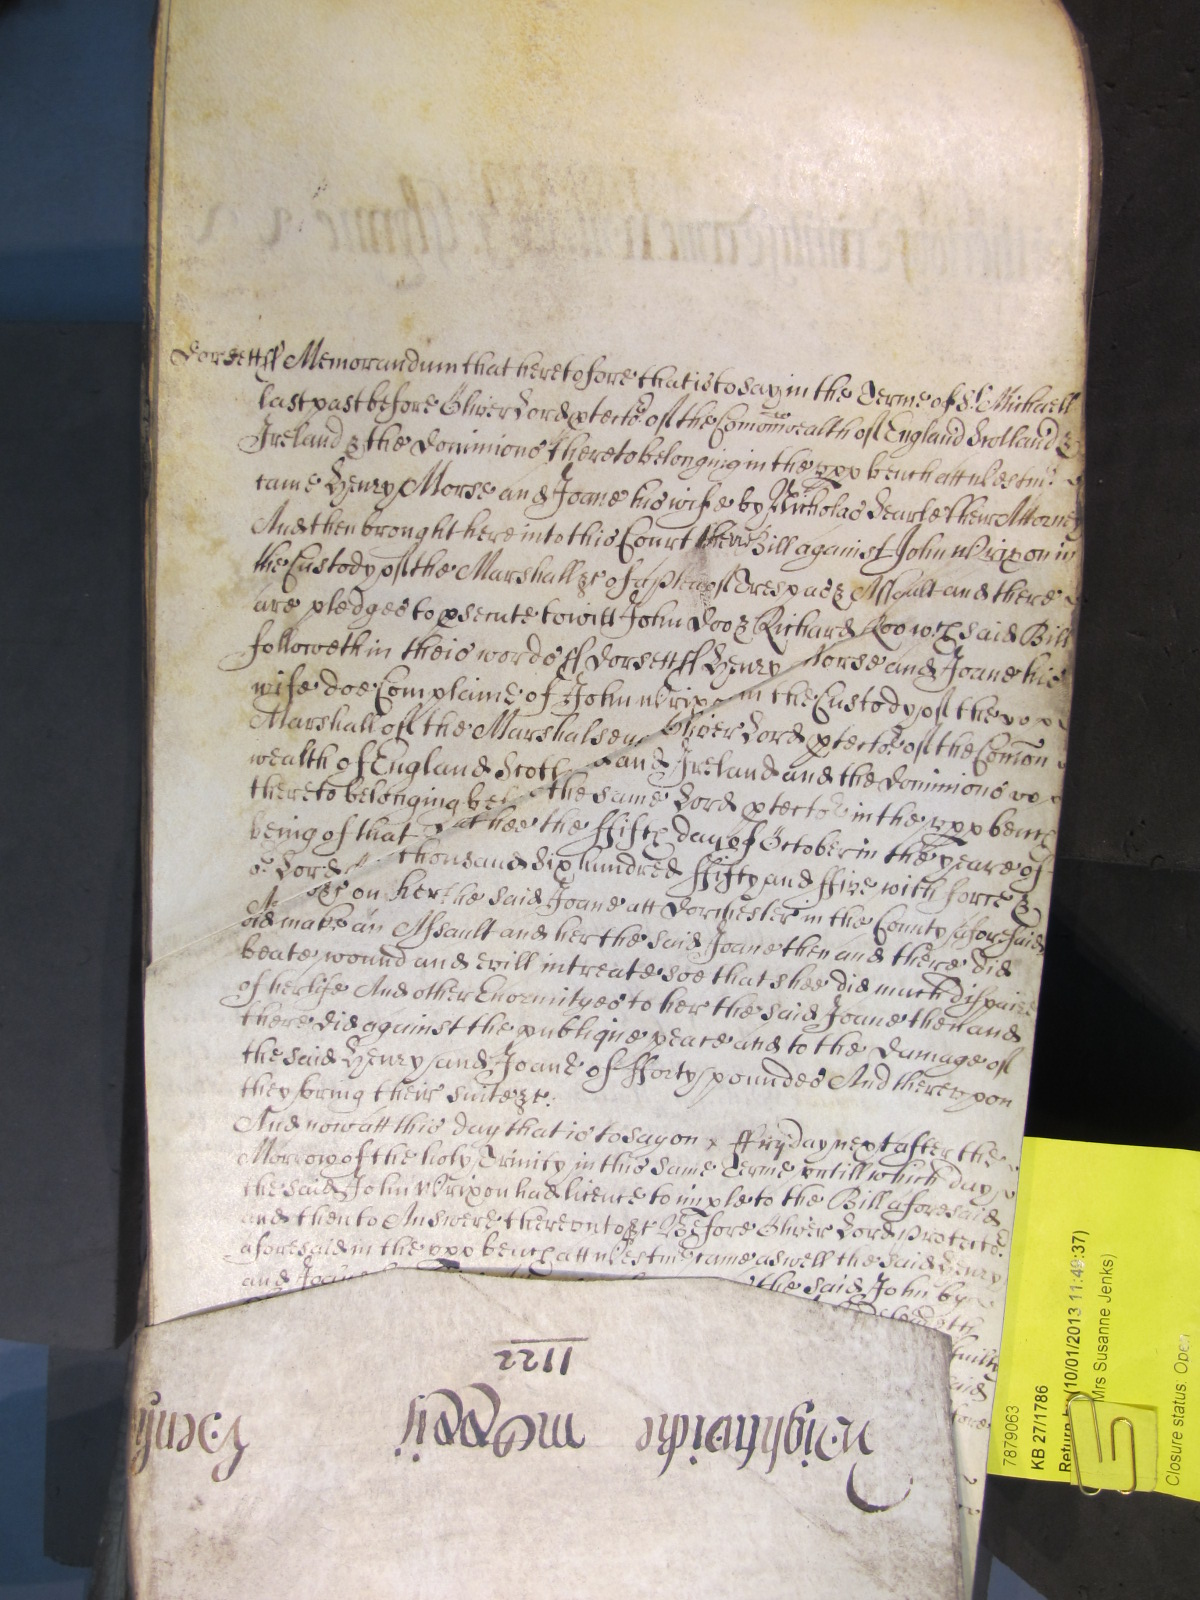 Dorsett ss Memorandum that heretofore that is to say in the Terme of St. Michaell
last past before Oliver Lord ptector of the Comonwealth of England Scotland &
Ireland & the Dominions thereto belonging in the vpp bench att Westmr.
came Henry Morse and Joane his wife by Nicholas Searle their Attorney
And then brought here into this Court their Bill against John Wrixon in
the Custody of the Marshall &c of a plea of Trespas & Assault and there
are pledges to psecute to witt John Doo & Richard Roo wch said Bill
followeth in theis words ss Dorsett ss Henry Morse and Joane his
wife doe Complaine of John Wrixon in the Custody of the
Marshall of the Marshalsea Oliver Lord ptector of the Comon
wealth of England Scotl and Ireland and the Dominions
thereto belonging the same Lord ptector in the vpp bench
being of that hee the ffifth day of October in the yeare of
or Lord thousand six hundred ffifty and ffive with force &
on her the said Joane att Dorchester in the County aforesaid
did make an Assault and her the said Joane then and there did
beate wound and evill intreate soe that shee did much dispaire
of her life And other Enormityes to her the said Joane then and
there did against the publique peace and to the Damage of
the said Henry and Joane of fforty poundes And therevpon
they bring their suite &c.
And now att this day that is to say on ffryday next after the
Morrow of the holy Trinity in this same Terme vntill which day
the said John Wrixon had licence to imple to the Bill aforesaid
and then to Answere thereonto &c Before Oliver Lord Protector
aforesaid in the vpp bench att Westmr came aswell the said Henry
and Joane the said John by
said
1122
7879063
KB 27/1786
Return by (10/01/2013 11:49:37)
Mrs Susanne Jenks)
Closure status: Open